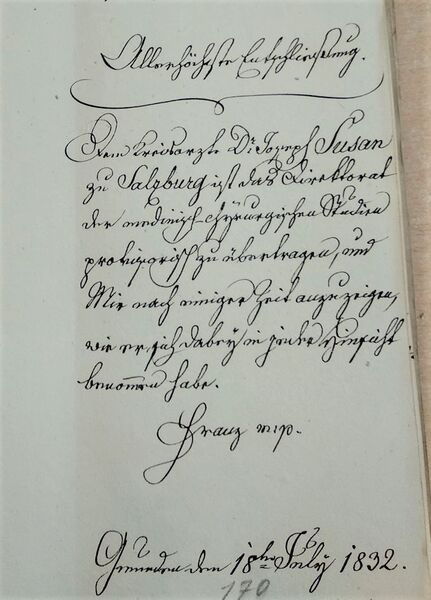 Allerhöchste Entschließung.
Dem Kreisarzte Dr. Joseph Susan
zu Salzburg ist das Direktorat
der medizinisch-chyrurgischen Studien
provisorisch zu übertragen, und
Mir nach einiger Zeit anzuzeigen,
wie er sich dabey in jeder Hinsicht
benommen habe.
Franz mp.
Gmunden den 18ten July 1832.
170